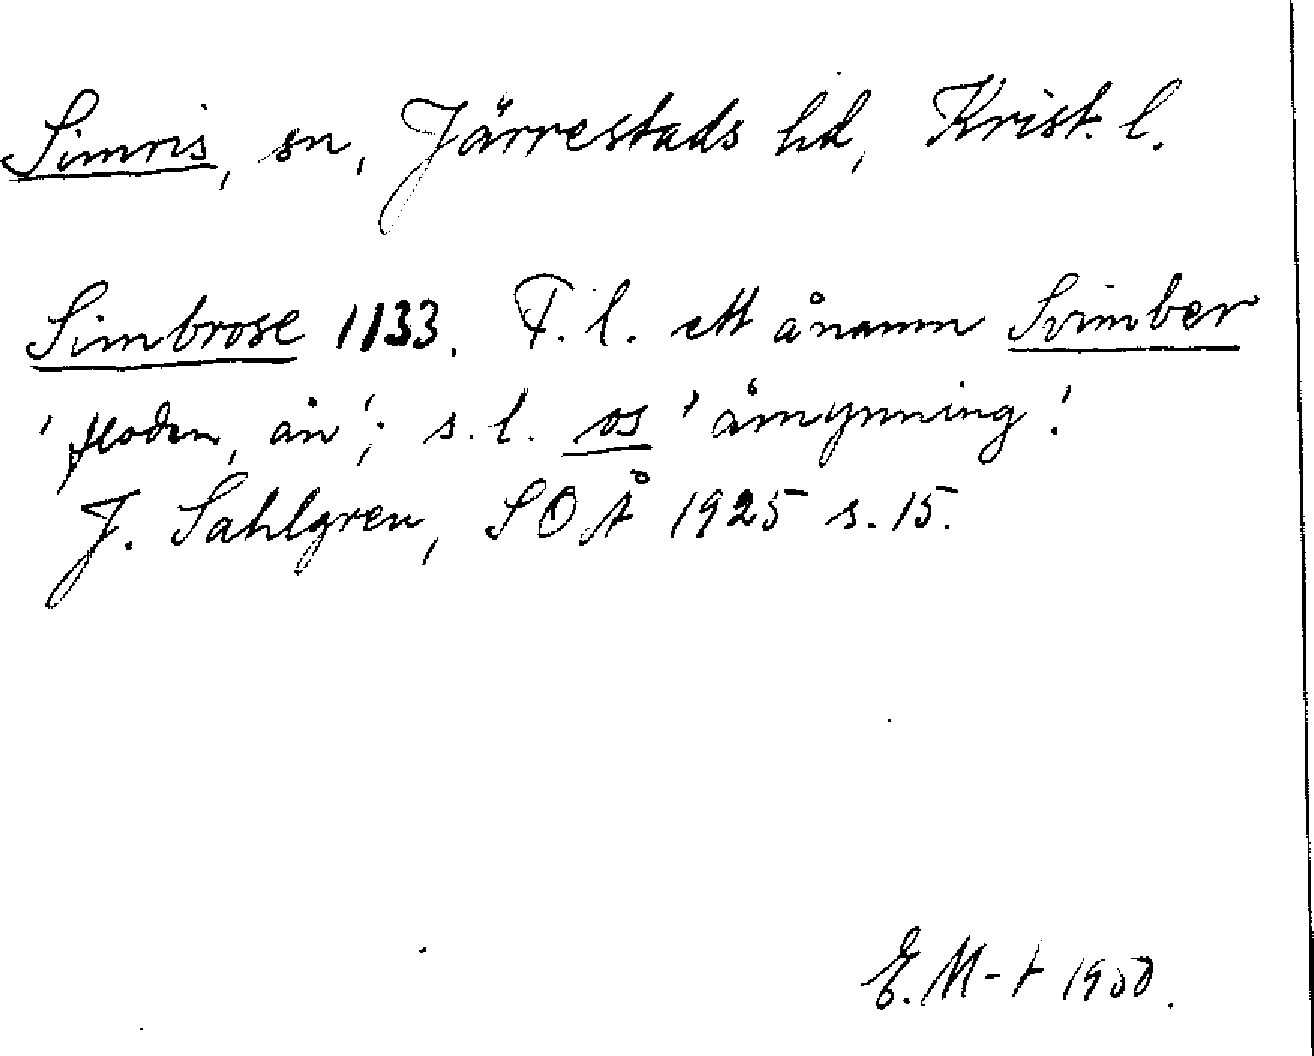 Simris, sn, Järrestads hd, Krist. l.
Simbrose 1133. F. l. ett ånamn Svimber
'floden, ån'; s. l. os 'åmynning'.
J. Sahlgren, SOÅ 1925 s. 15.
E. M-t 1950.